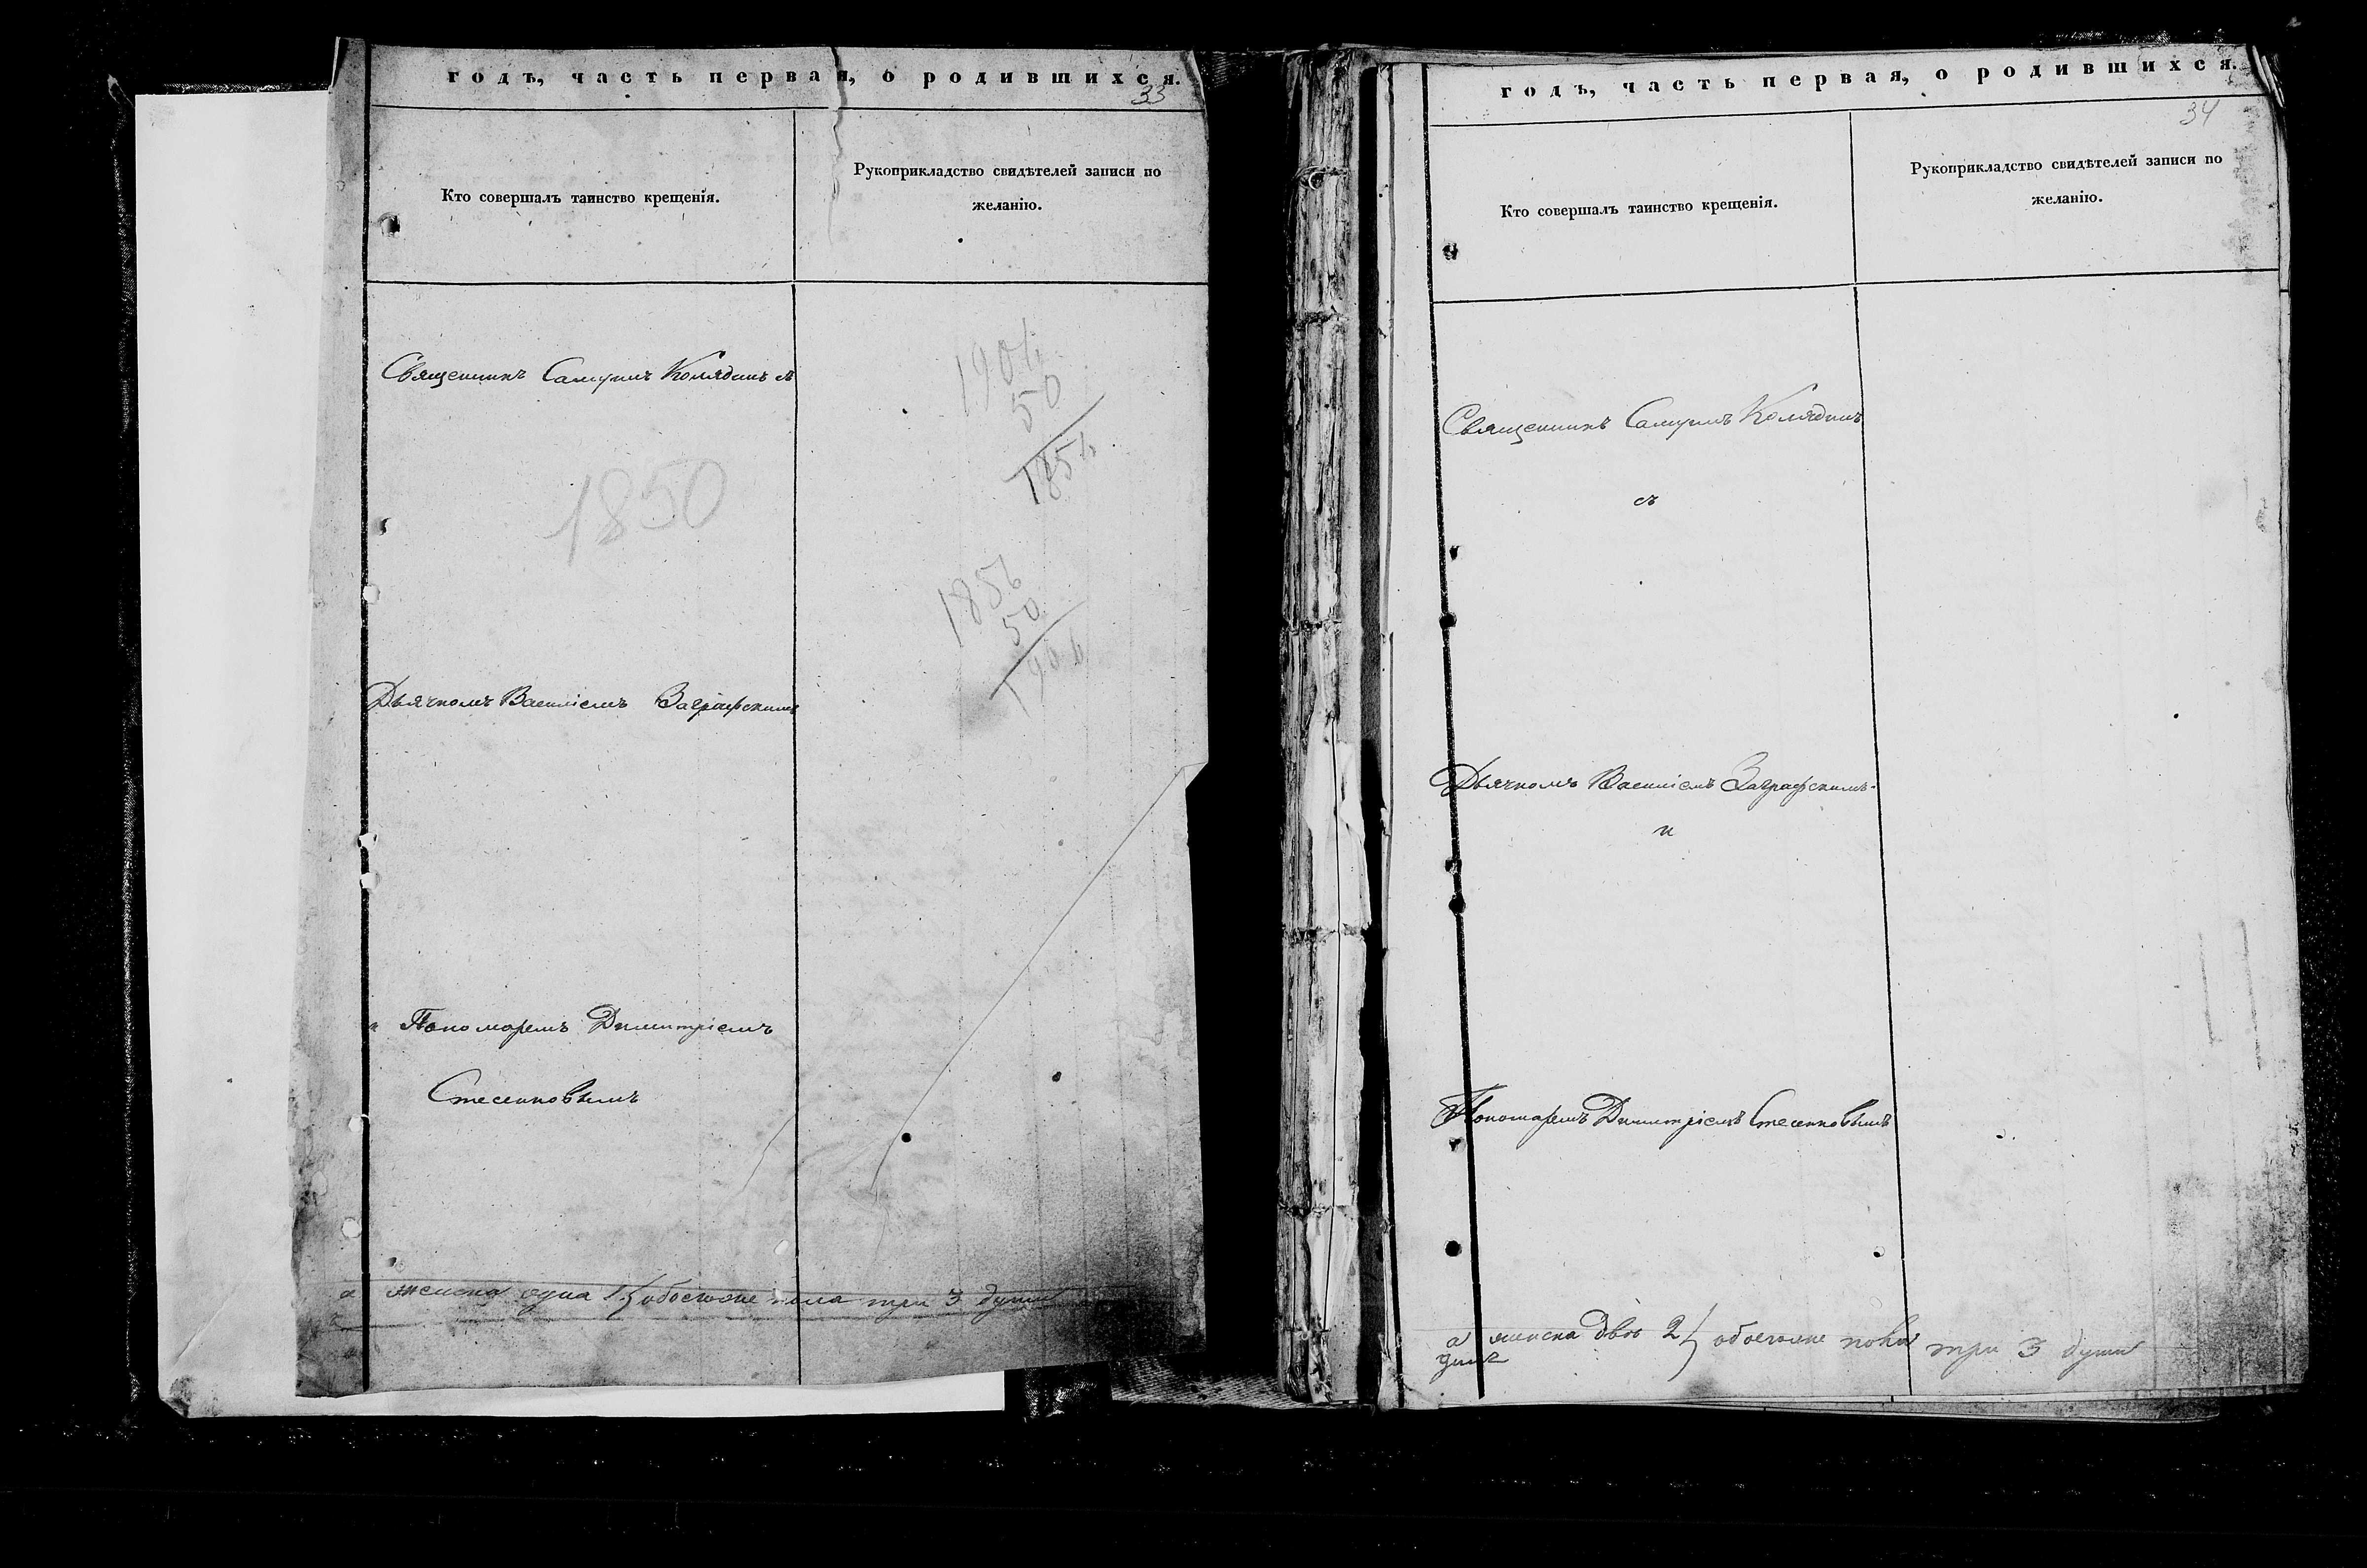 годъ, часть первая, о родившихся.
33
Кто совершалъ таинство крещенія.
Рукоприкладство свидѣтелей записи по
желанію.
Священникъ Самуилъ Колядинъ съ
1904
50
1854
1850
1856
50
1906
Дьячкомъ Василіемъ Заграфскимъ
и Пономаремъ Димитріемъ
Стесенковымъ
а женска одна 1 } обоегоже пола три 3 души
годъ, часть первая, о родившихся.
34
Кто совершалъ таинство крещенія.
Рукоприкладство свидѣтелей записи по
желанію.
Священникъ Самуилъ Колядинъ
съ
Дьячкомъ Василіемъ Заграфскимъ
и
Пономаремъ Димитріемъ Стесенковымъ
а женска двѣ 2 } обоегоже пола три 3 души